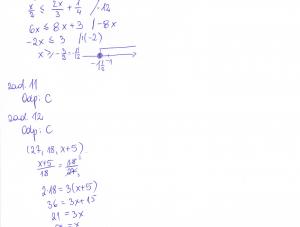 x/2 ≤ 2x/3 + 1/4 /·12
6x ≤ 8x + 3 /-8x
-2x ≤ 3 /:(-2)
x ≥ -3/2 = -1 1/2
-1 1/2 -1
zad. 11
Odp: C
zad. 12
Odp: C
(27, 18, x+5)
x+5/18 = 18/27
2·18 = 3(x+5)
36 = 3x + 15
21 = 3x